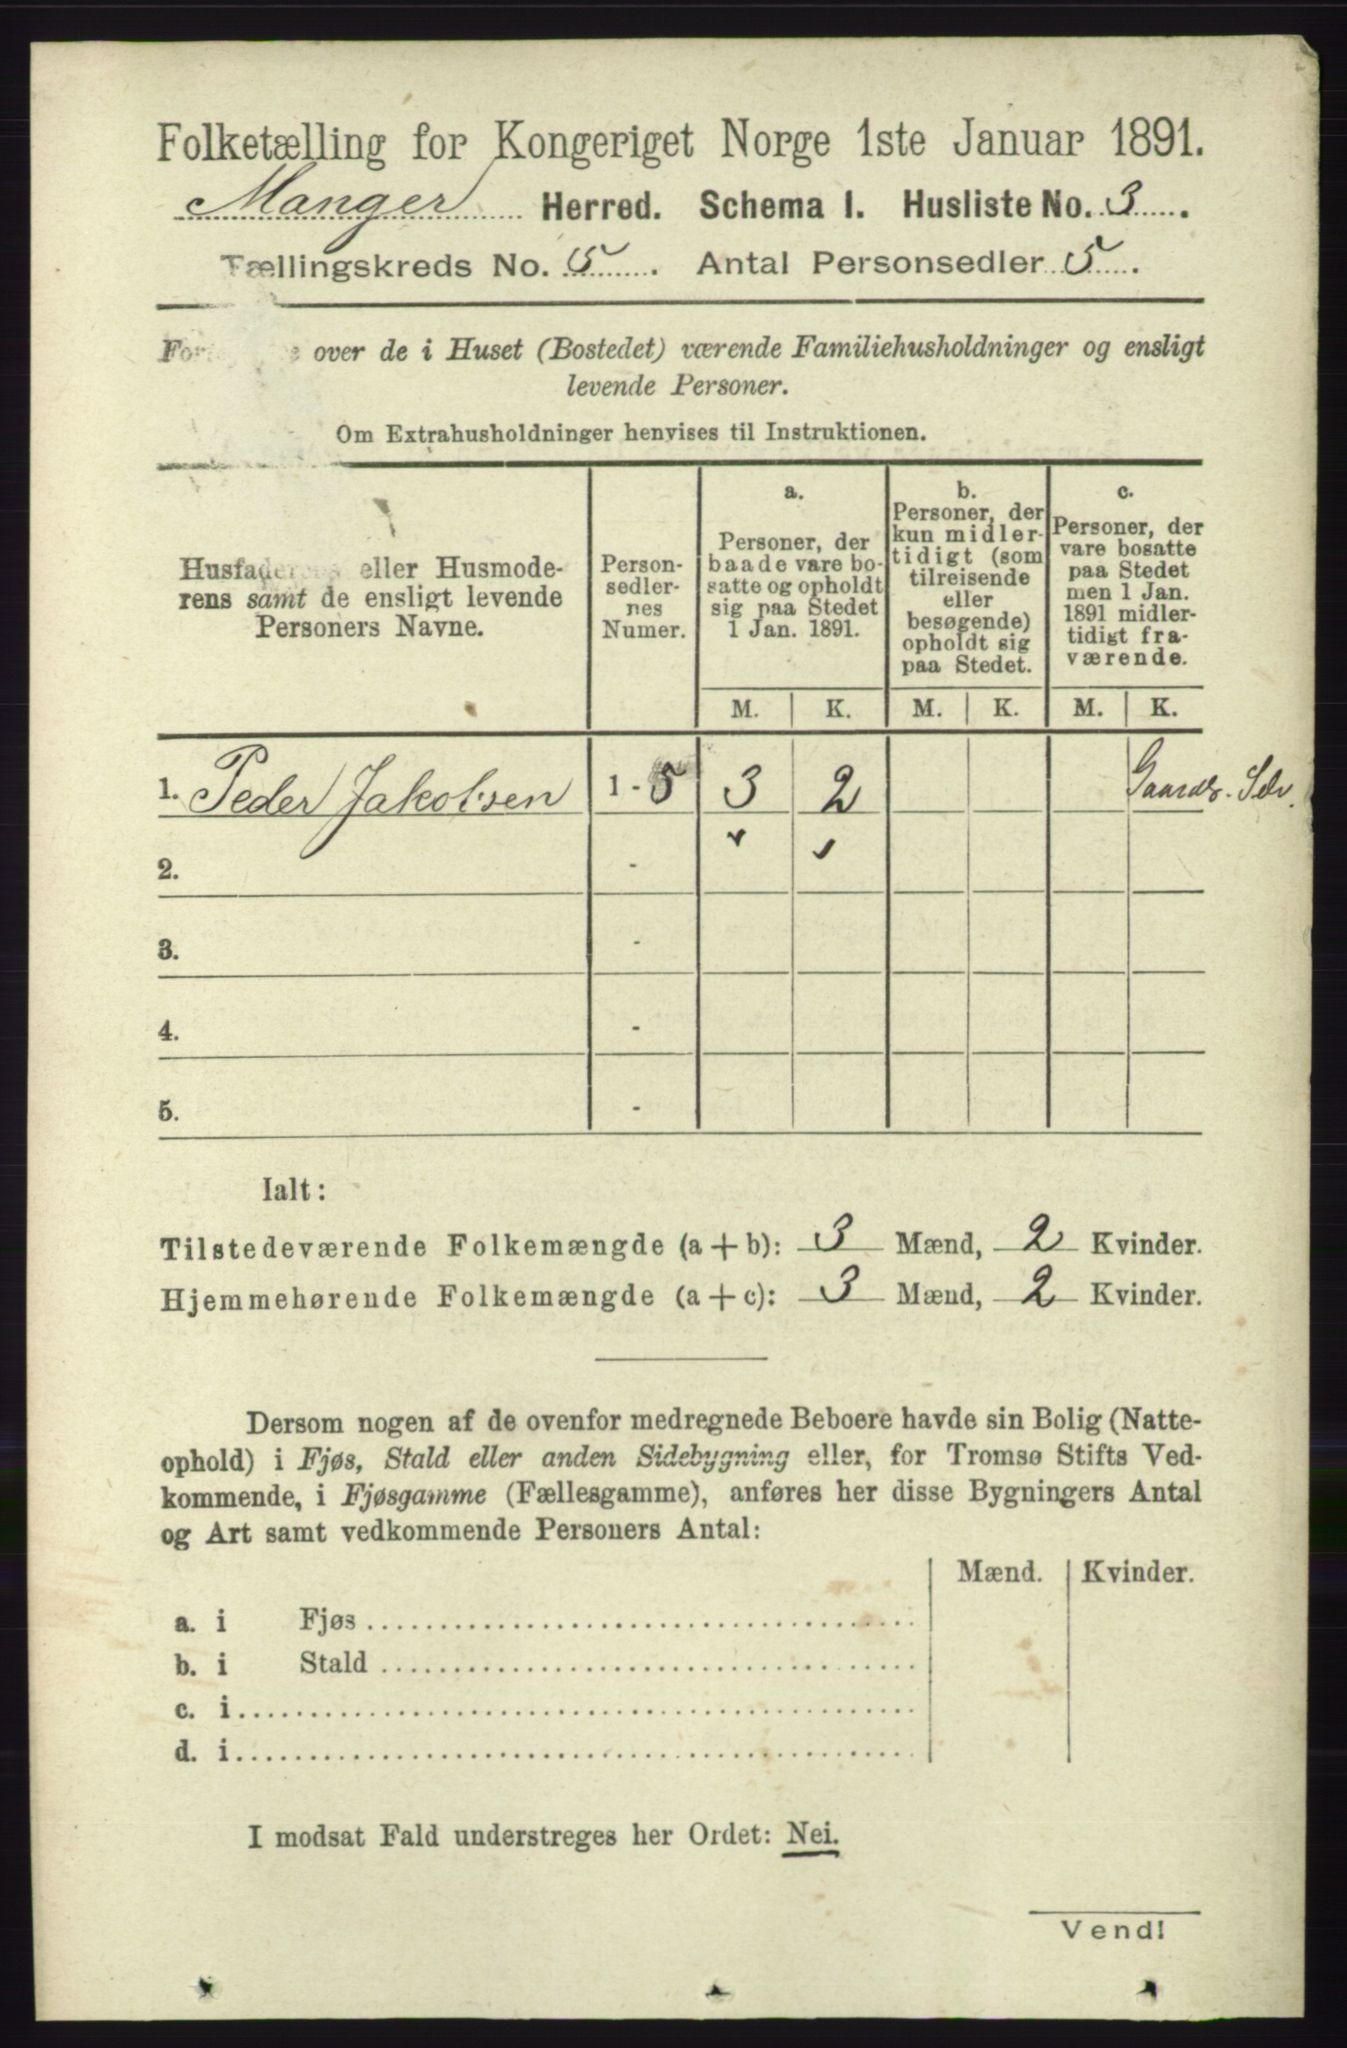 Folketælling for Kongeriget Norge 1ste Januar 1891.
Manger Herred. Schema I. Husliste No. 3.
Tællingskreds No. 5. Antal Personsedler 5.
over de i Huset (Bostedet) værende Familiehusholdninger og ensligt
levende Personer.
Om Extrahusholdninger henvises til Instruktionen.
Husfaderens eller Husmode-
rens samt de ensligt levende
Personers Navne.
Person-
sedler-
nes
Numer.
a.
Personer, der
baade vare bo-
satte og opholdt
sig paa Stedet
1 Jan. 1891.
b.
Personer, der
kun midler-
tidigt (som
tilreisende
eller
besøgende)
opholdt sig
paa Stedet.
c.
Personer, der
vare bosatte
paa Stedet
men 1 Jan.
1891 midler-
tidigt fra-
værende.
M. K. M. K. M. K.
1. Peder Jakobsen 1 - 5 3 2 Gaardb. Selv.
2. -
3. -
4. -
5. -
Ialt:
Tilstedeværende Folkemængde (a + b): 3 Mænd, 2 Kvinder.
Hjemmehørende Folkemængde (a + c): 3 Mænd, 2 Kvinder.
Dersom nogen af de ovenfor medregnede Beboere havde sin Bolig (Natte-
ophold) i Fjøs, Stald eller anden Sidebygning eller, for Tromsø Stifts Ved-
kommende, i Fjøsgamme (Fællesgamme), anføres her disse Bygningers Antal
og Art samt vedkommende Personers Antal:
Mænd. Kvinder.
a. i Fjøs
b. i Stald
c. i
d. i
I modsat Fald understreges her Ordet: Nei.
Vend!